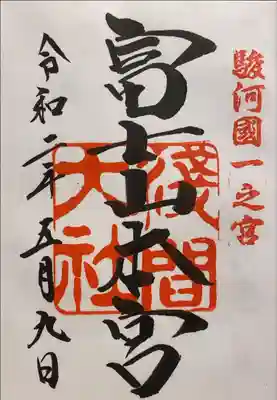 駿河國一之宮
富士山本宮
浅間大社
令和二年五月九日